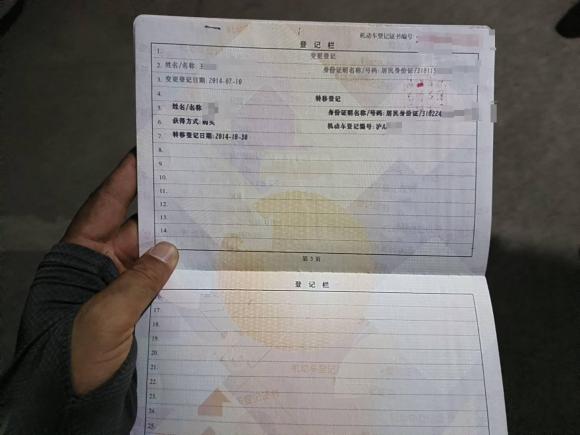 机动车登记证书编号:
登记栏
1. 变更登记
2. 姓名/名称 身份证明名称/号码:居民身份证/310115
3. 变更登记日期:2014-07-10
4. 转移登记
5. 姓名/名称 身份证明名称/号码:居民身份证/310224
6. 获得方式:购买 机动车登记编号:沪A
7. 转移登记日期:2014-10-30
8.
9.
10.
11.
12.
13.
14
第5页
登记栏
17.
18.
19.
20.
21.
22.
23.
24.
25.
机动车登记